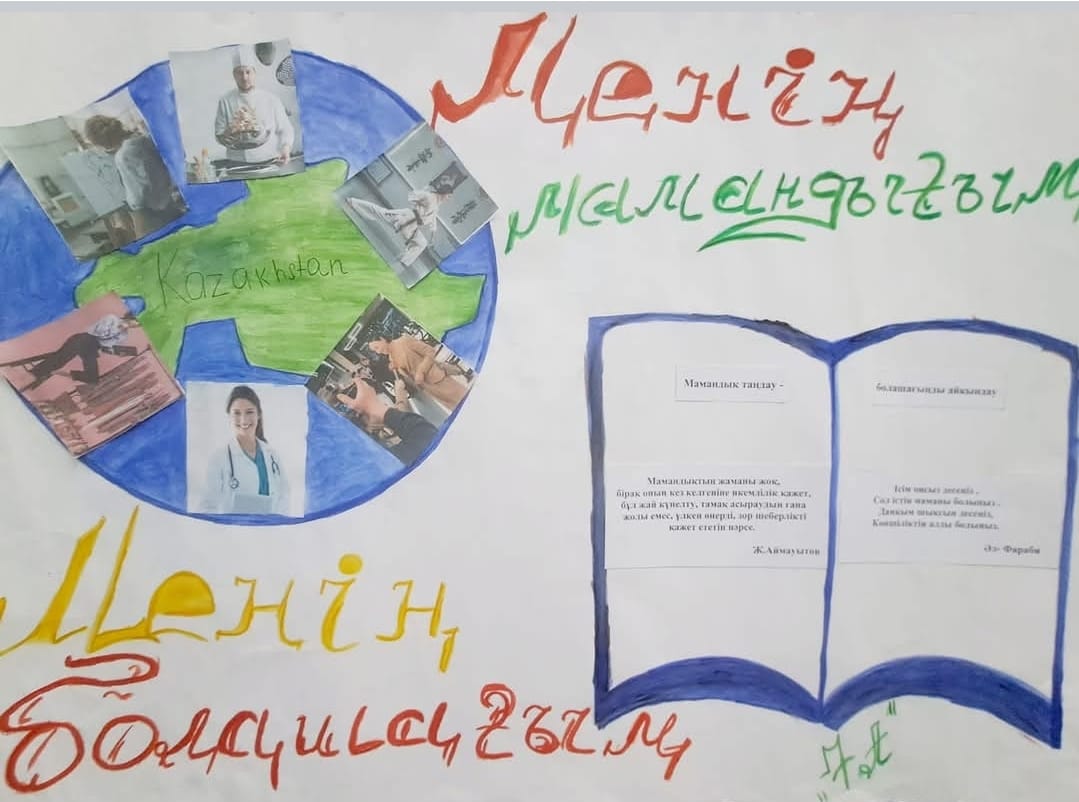 Менің
мамандығым
Kazakhstan
Мамандық таңдау -
болашағыңды айқындау
Мамандықтың жаманы жоқ,
бірақ оның кез келгеніне икемділік қажет,
бұл жай күнелту, тамақ асыраудың ғана
жолы емес, үлкен өнерді, зор шеберлікті
қажет ететін нәрсе.
Ж.Аймауытов
Ісім оңсыз десеңіз ,
Сол істің маманы болыңыз .
Даңқым шықсын десеңіз,
Көпшіліктің алды болыңыз.
Әл- Фараби
Менің
болашағым